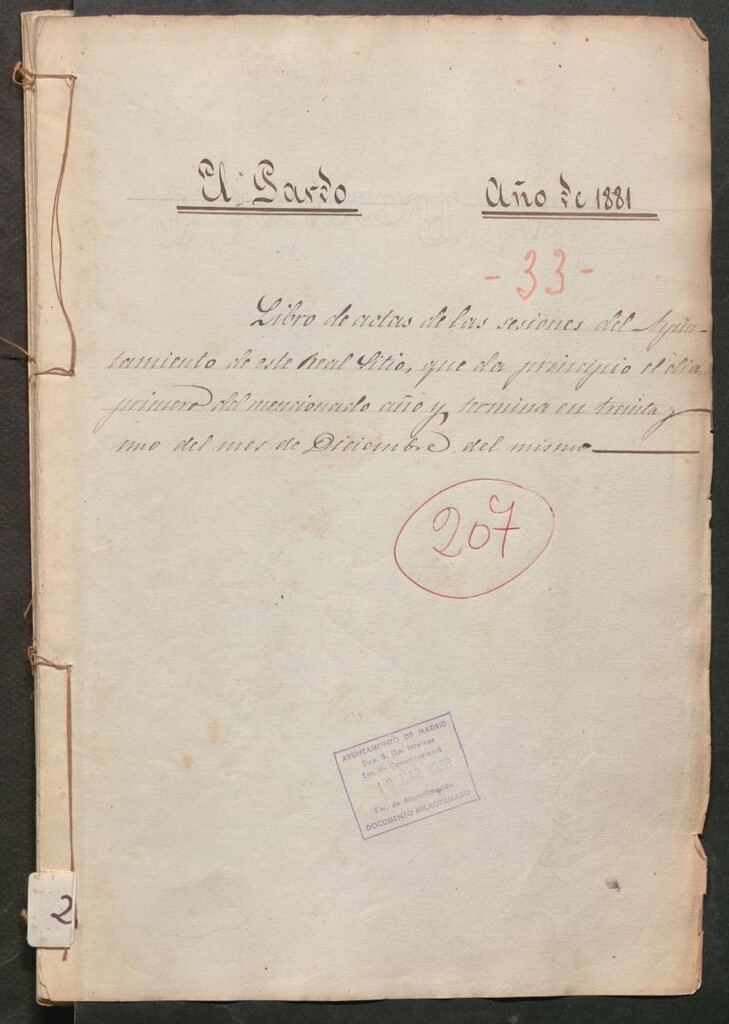 El Pardo Año de 1881
- 33 -
Libro de actas de las sesiones del Ayun-
tamiento de este Real Sitio, que da principio el dia
primero del mencionado año y termina en treinta y
uno del mes de Diciembre del mismo
207
AYUNTAMIENTO DE MADRID
Dep. S. Op. Internas
Sec. de
19
de Microfilmación
DOCUMENTO MICROFILMADO
2